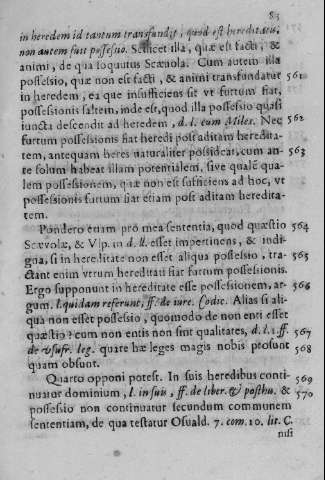 83
in heredem id tantum transfundit, quod est hereditariũ,
non autem fuit possessio. Scilicet illa, quæ est facti, &
animi, de qua loquutus Scævola. Cum autem illa
possessio, quæ non est facti, & animi transfundatur 561
in heredem, ea que insufficiens sit vt furtum fiat,
possessionis saltem, inde est, quod illa possessio quasi
iuncta descendit ad heredem, d. l. cum Miles. Nec 562
furtum possessionis fiat heredi post aditam heredita-
tem, antequam heres naturaliter possideat, cum an- 563
te solum habeat illam potentialem, sive qualẽ qua-
lem possessionem, quæ non est sufficiens ad hoc, vt
possessionis furtum fiat etiam post aditam heredita-
tem.
Pondero etiam pro mea sententia, quod quæstio 564
Scævolæ, & Vlp. in d. ll. esset impertinens, & indi-
gna, si in hereditate non esset aliqua possessio, tra- 565
ctant enim vtrum hereditati fiat furtum possessionis.
Ergo supponunt in hereditate esse possessionem, ar- 566
gum. l. quidam referunt, ff. de iure. codic. Alias si ali-
qua non esset possessio, quomodo de non enti esset
quæstio? cum non entis non sint qualitates, d. l. 1. ff. 567
de vsufr. leg. quare hæ leges magis nobis prosunt 568
quam obsunt.
Quarto opponi potest. In suis heredibus conti- 569
nuatur dominium, l. in suis, ff. de liber. & posthu. & 570
possessio non continuatur secundum communem
sententiam, de qua testatur Osuald. 7. com. 10. lit. C.
nisi